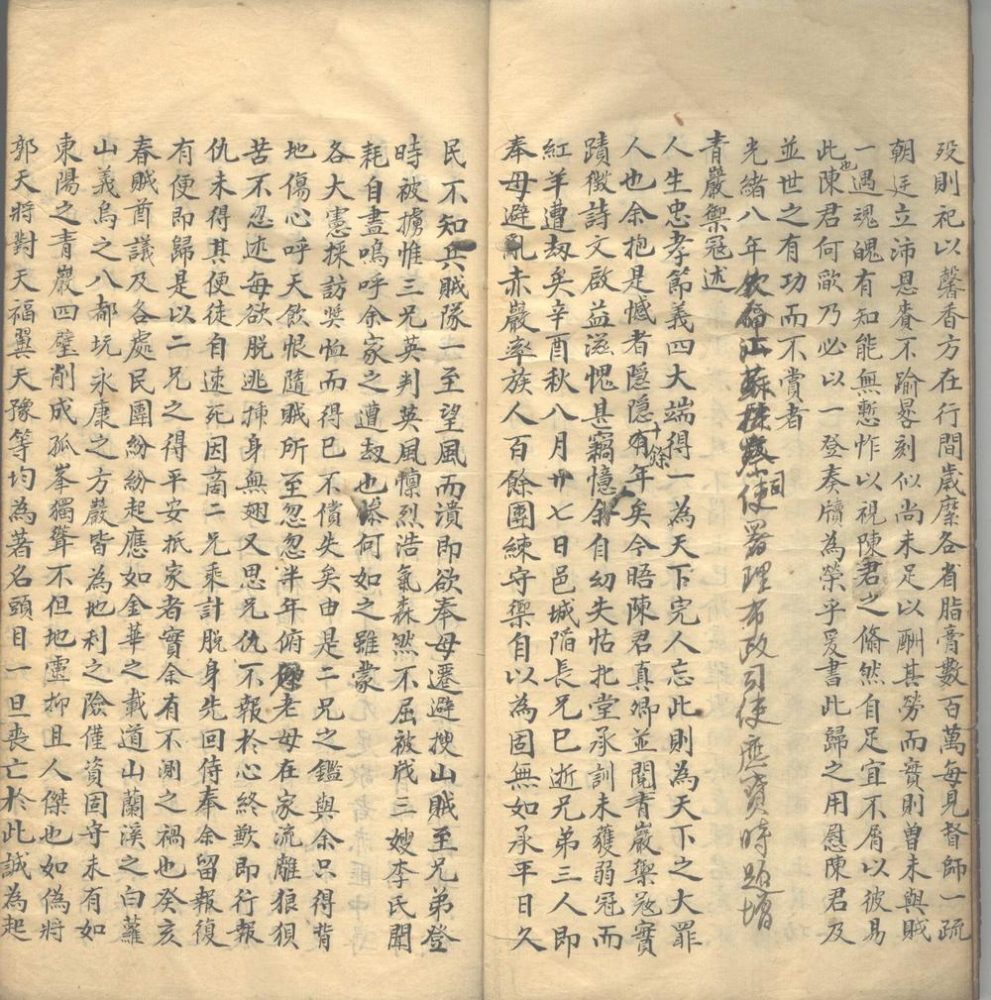 歿則祀以馨香方在行間歲糜各省脂膏數百萬每見督師一疏
朝廷立沛恩賚不踰晷刻似尚未足以酬其勞而實則曾未與賊
一遇魂魄有知能無慙怍以視陳君之翛然自足宜不屑以彼易
此也陳君何歉乃必以一登奏牘為榮乎爰書此歸之用慰陳君及
並世之有功而不賞者
光緒八年欽命江蘇按察使司署理布政司使應寶時題增
青巖禦寇述
人生忠孝節義四大端得一為天下完人忘此則為天下之大罪
人也余抱是憾者隱隱有十餘年矣今晤陳君真卿並閱青巖禦寇實
蹟徵詩文啟益滋愧其竊憶余自幼失怙北堂承訓未獲弱冠而
紅羊遭刼矣辛酉秋八月廿七日邑城陷長兄已逝兄弟三人即
奉母避亂赤巖率族人百餘團練守禦自以為固無如承平日久
民不知兵賊隊一至望風而潰即欲奉母遷避搜山賊至兄弟登
時被擄惟三兄英判英風懍烈浩氣森然不屈被戕三嫂李氏聞
耗自盡嗚呼余家之遭刼也慘何如之雖蒙
各大憲採訪奬恤而得已不償失矣由是二兄之鑑與余只得背
地傷心呼天飲恨隨賊所至忽忽半年俯思老母在家流離狼狽
苦不忍述每欲脫逃插身無翅又思兄仇不報於心終歉即行報
仇未得其便徒自速死因商二兄乘計脫身先回侍奉余留報復
有便即歸是以二兄之得平安抵家者實余有不測之禍也癸亥
春賊酋議及各處民團紛紛起應如金華之載道山蘭溪之白蘿
山義烏之八都坑永康之方巖皆為地利之險僅資固守未有如
東陽之青巖四壁削成孤峯獨聳不但地靈抑且人傑也如偽將
郭天將對天福翼天豫等均為著名頭目一旦喪亡於此誠為起